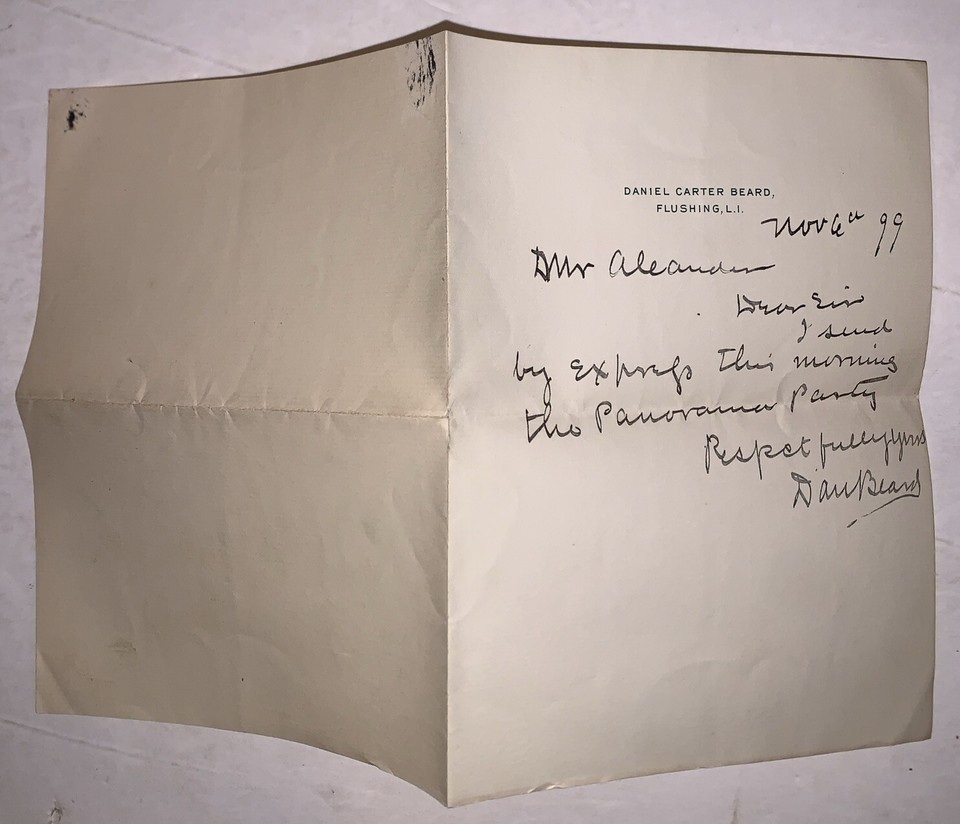 DANIEL CARTER BEARD,
FLUSHING, L.I.
Nov 6th 99
Mr Aleander
Dear Sir
I send
by Express this morning
the Panorama Party
Respectfully yours
Dan Beard